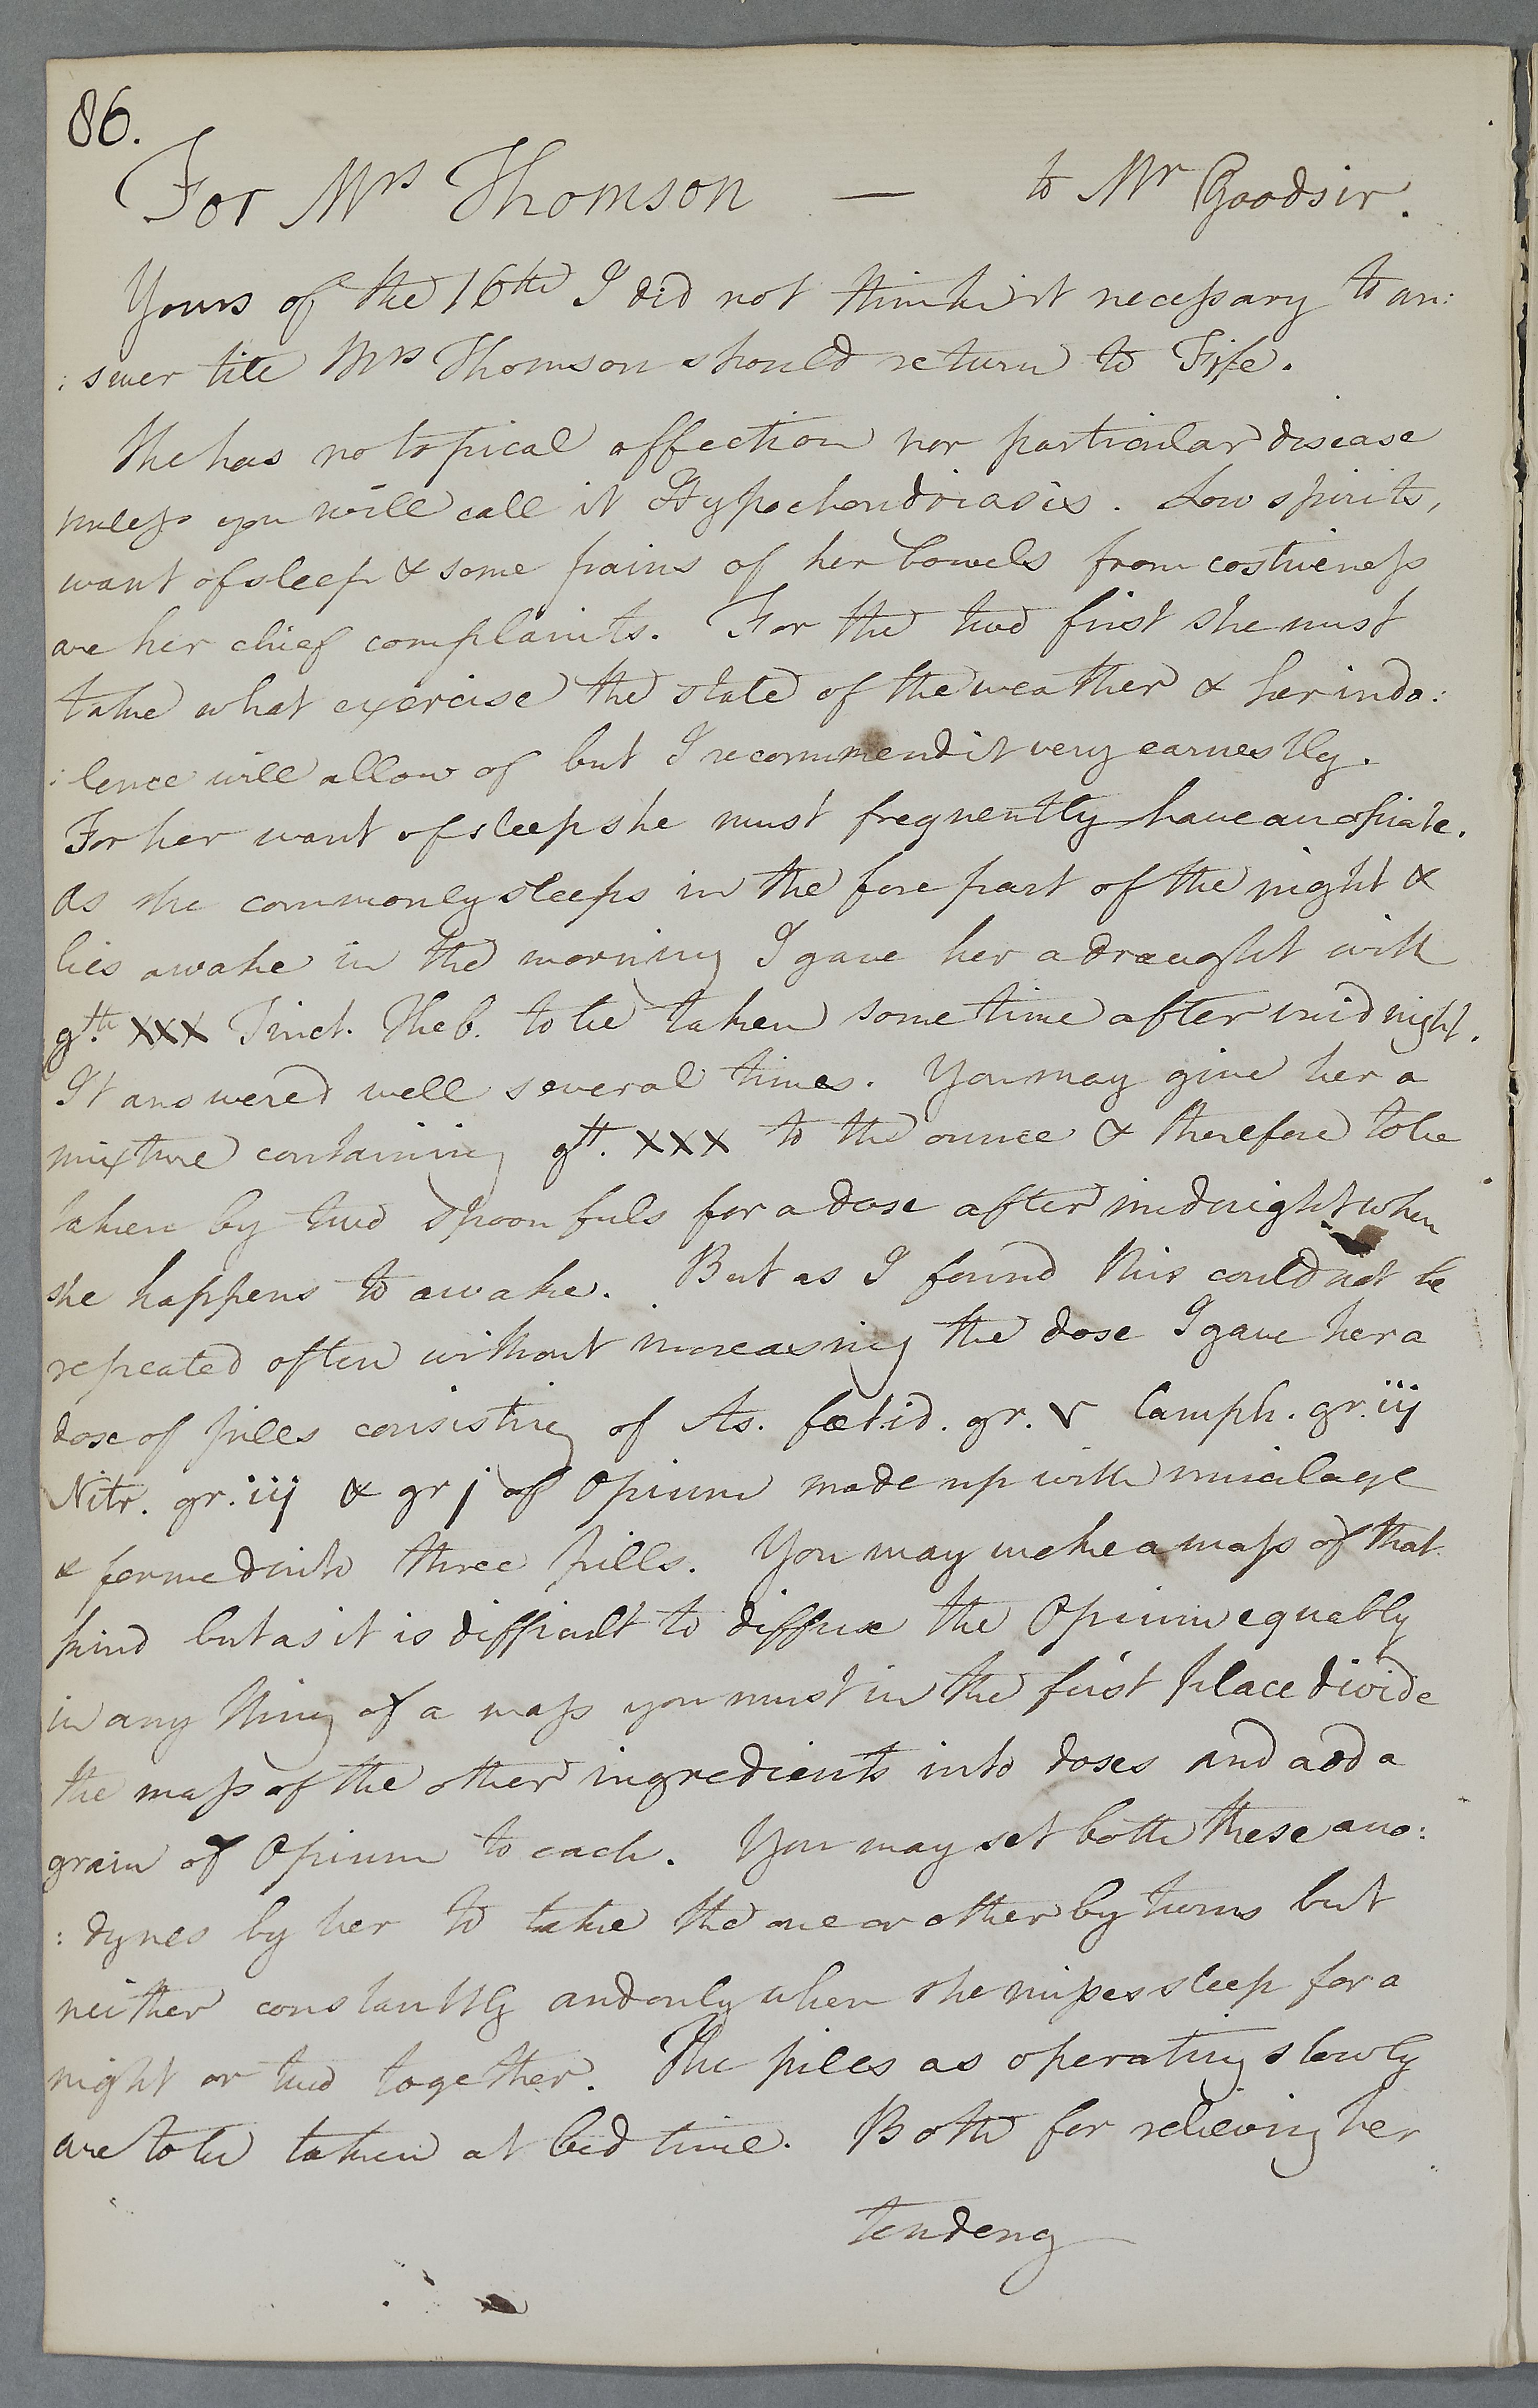 86.
For Mrs Thomson — to Mr Goodsir.
Yours of the 16th I did not think it necessary to an:
: swer till Mrs Thomson should return to Fife.
She has no topical affection nor particular disease
unless you will call it Hypochondriasis. Low spirits,
want of sleep & some pains of her bowels from costiveness
are her chief complaints. For the two first she must
take what exercise the state of the weather & her indo:
: lence will allow of but I recommend it very earnestly.
For her want of sleep she must frequently have an opiate.
As she commonly sleeps in the fore part of the night &
lies awake in the morning I gave her a draught with
gtt. XXX Tinct. Theb. to be taken some time after midnight.
It answered well several times. You may give her a
mixture containing gtt. XXX to the ounce & therefore to be
taken by two spoonfuls for a dose after midnight when
she happens to awake. But as I found this could not be
repeated often without increasing the dose I gave her a
dose of pills consisting of As. fœtid. gr. v Camph. gr. iij
Nitr. gr. iij & gr j of Opium made up with mucilage
& formed into three pills. You may make a mass of that
kind but as it is difficult to diffuse the Opium equally
in any thing of a mass you must in the first place divide
the mass of the other ingredients into doses and add a
grain of Opium to each. You may set both these ano:
: dynes by her to take the one or other by turns but
neither constantly and only when she misses sleep for a
night or two together. The pills as operating slowly
are to be taken at bed time. Both for relieving her
tendency